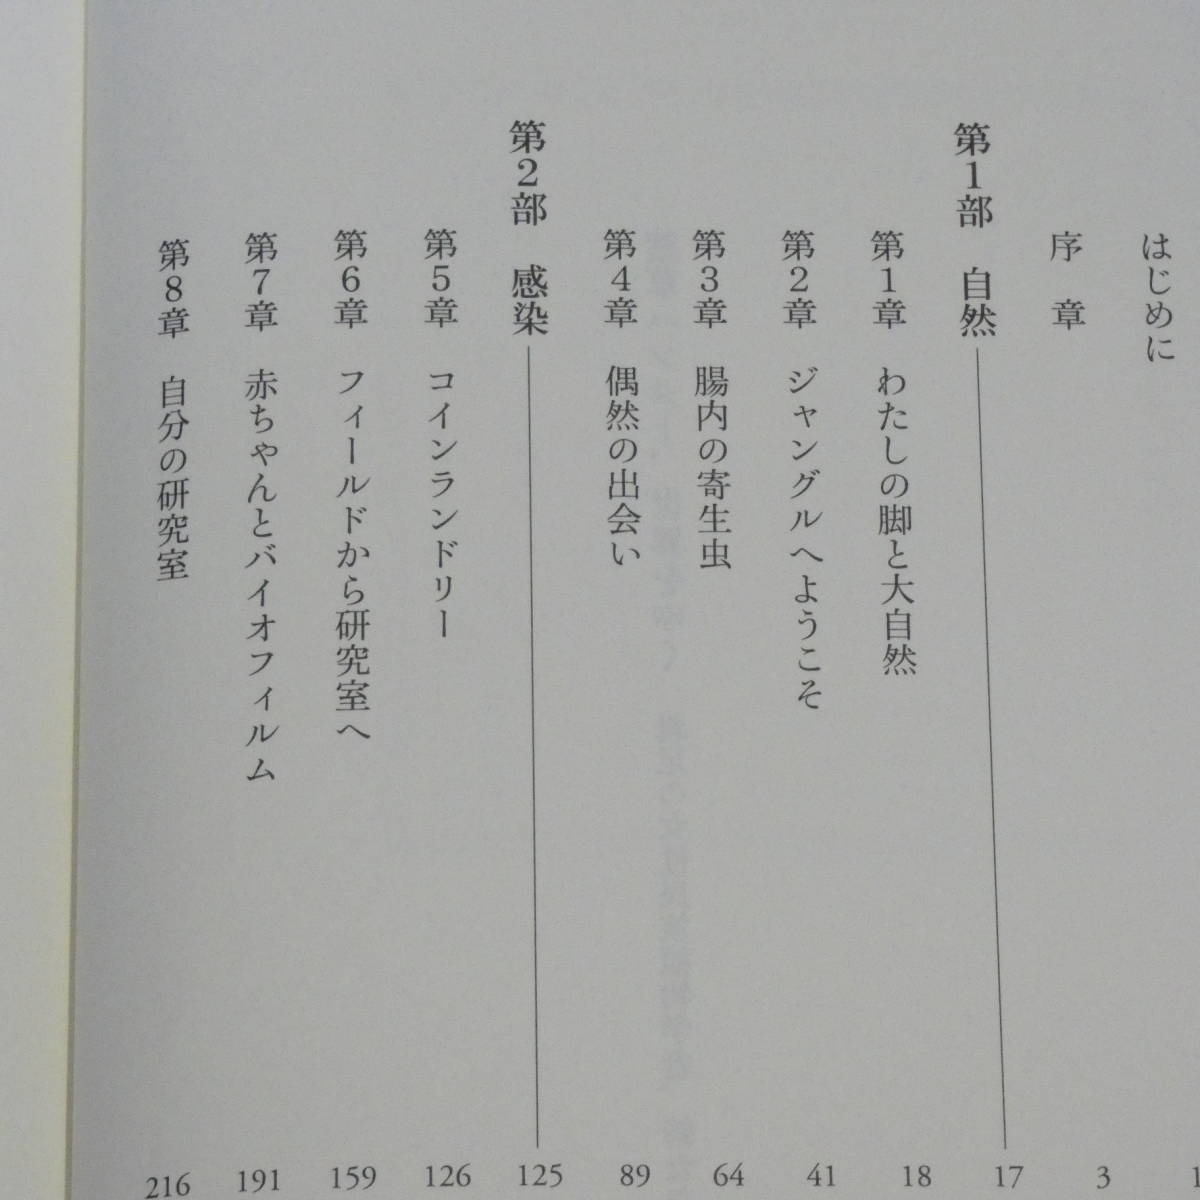 はじめに 1
序章 3
第1部 自然 17
第1章 わたしの脚と大自然 18
第2章 ジャングルへようこそ 41
第3章 腸内の寄生虫 64
第4章 偶然の出会い 89
第2部 感染 125
第5章 コインランドリー 126
第6章 フィールドから研究室へ 159
第7章 赤ちゃんとバイオフィルム 191
第8章 自分の研究室 216